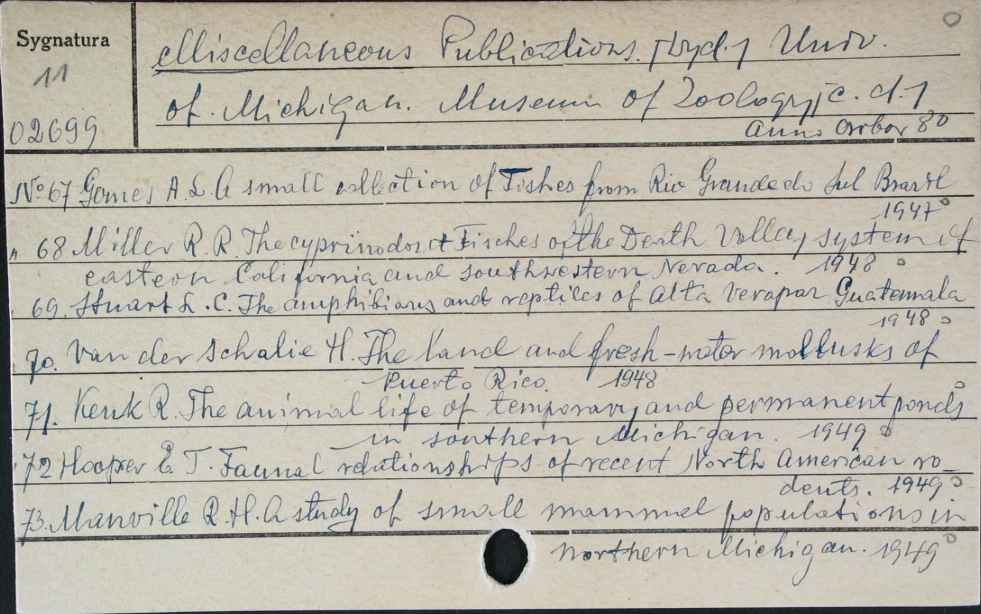 Sygnatura
11
02699
Miscellaneous Publications. [Wyd.] Univ.
of. Michigan. Museum of Zoology [c. d.]
Anno Arbor 80
No 67 Gomes A. L. A small collection of Fishes from Rio Grande do Sul Brasil
1947
" 68 Miller R. R. The cyprinodont Fisches of the Death Valley system of
eastern California and southwestern Nevada. 1948
69. Stuart L. C. The amphibians and reptiles of Alta Verapaz Guatemala
1948
70. Van der Schalie H. The land and fresh-water mollusks of
Puerto Rico. 1948
71. Kenk R. The animal life of temporary and permanent ponds
in southern Michigan. 1949
72 Hooper E T. Faunal relationships of recent North American ro-
dents. 1949
73. Manville R. H. A study of small mammal populations in
northern Michigan. 1949